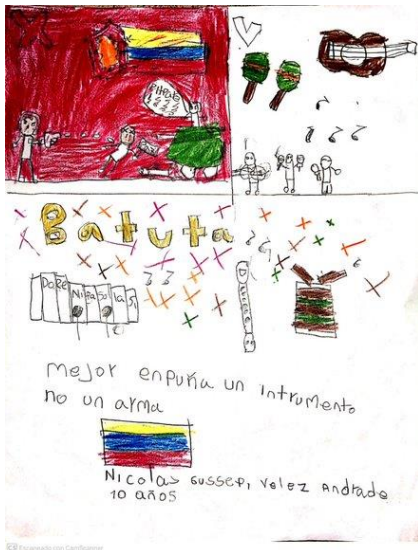 Batuta
Do Re Mi Fa So la Si
mejor enpuña un intrumento
no un arma
Nicolas Gussepi Velez Andrade
10 años
CS Escaneado con CamScanner